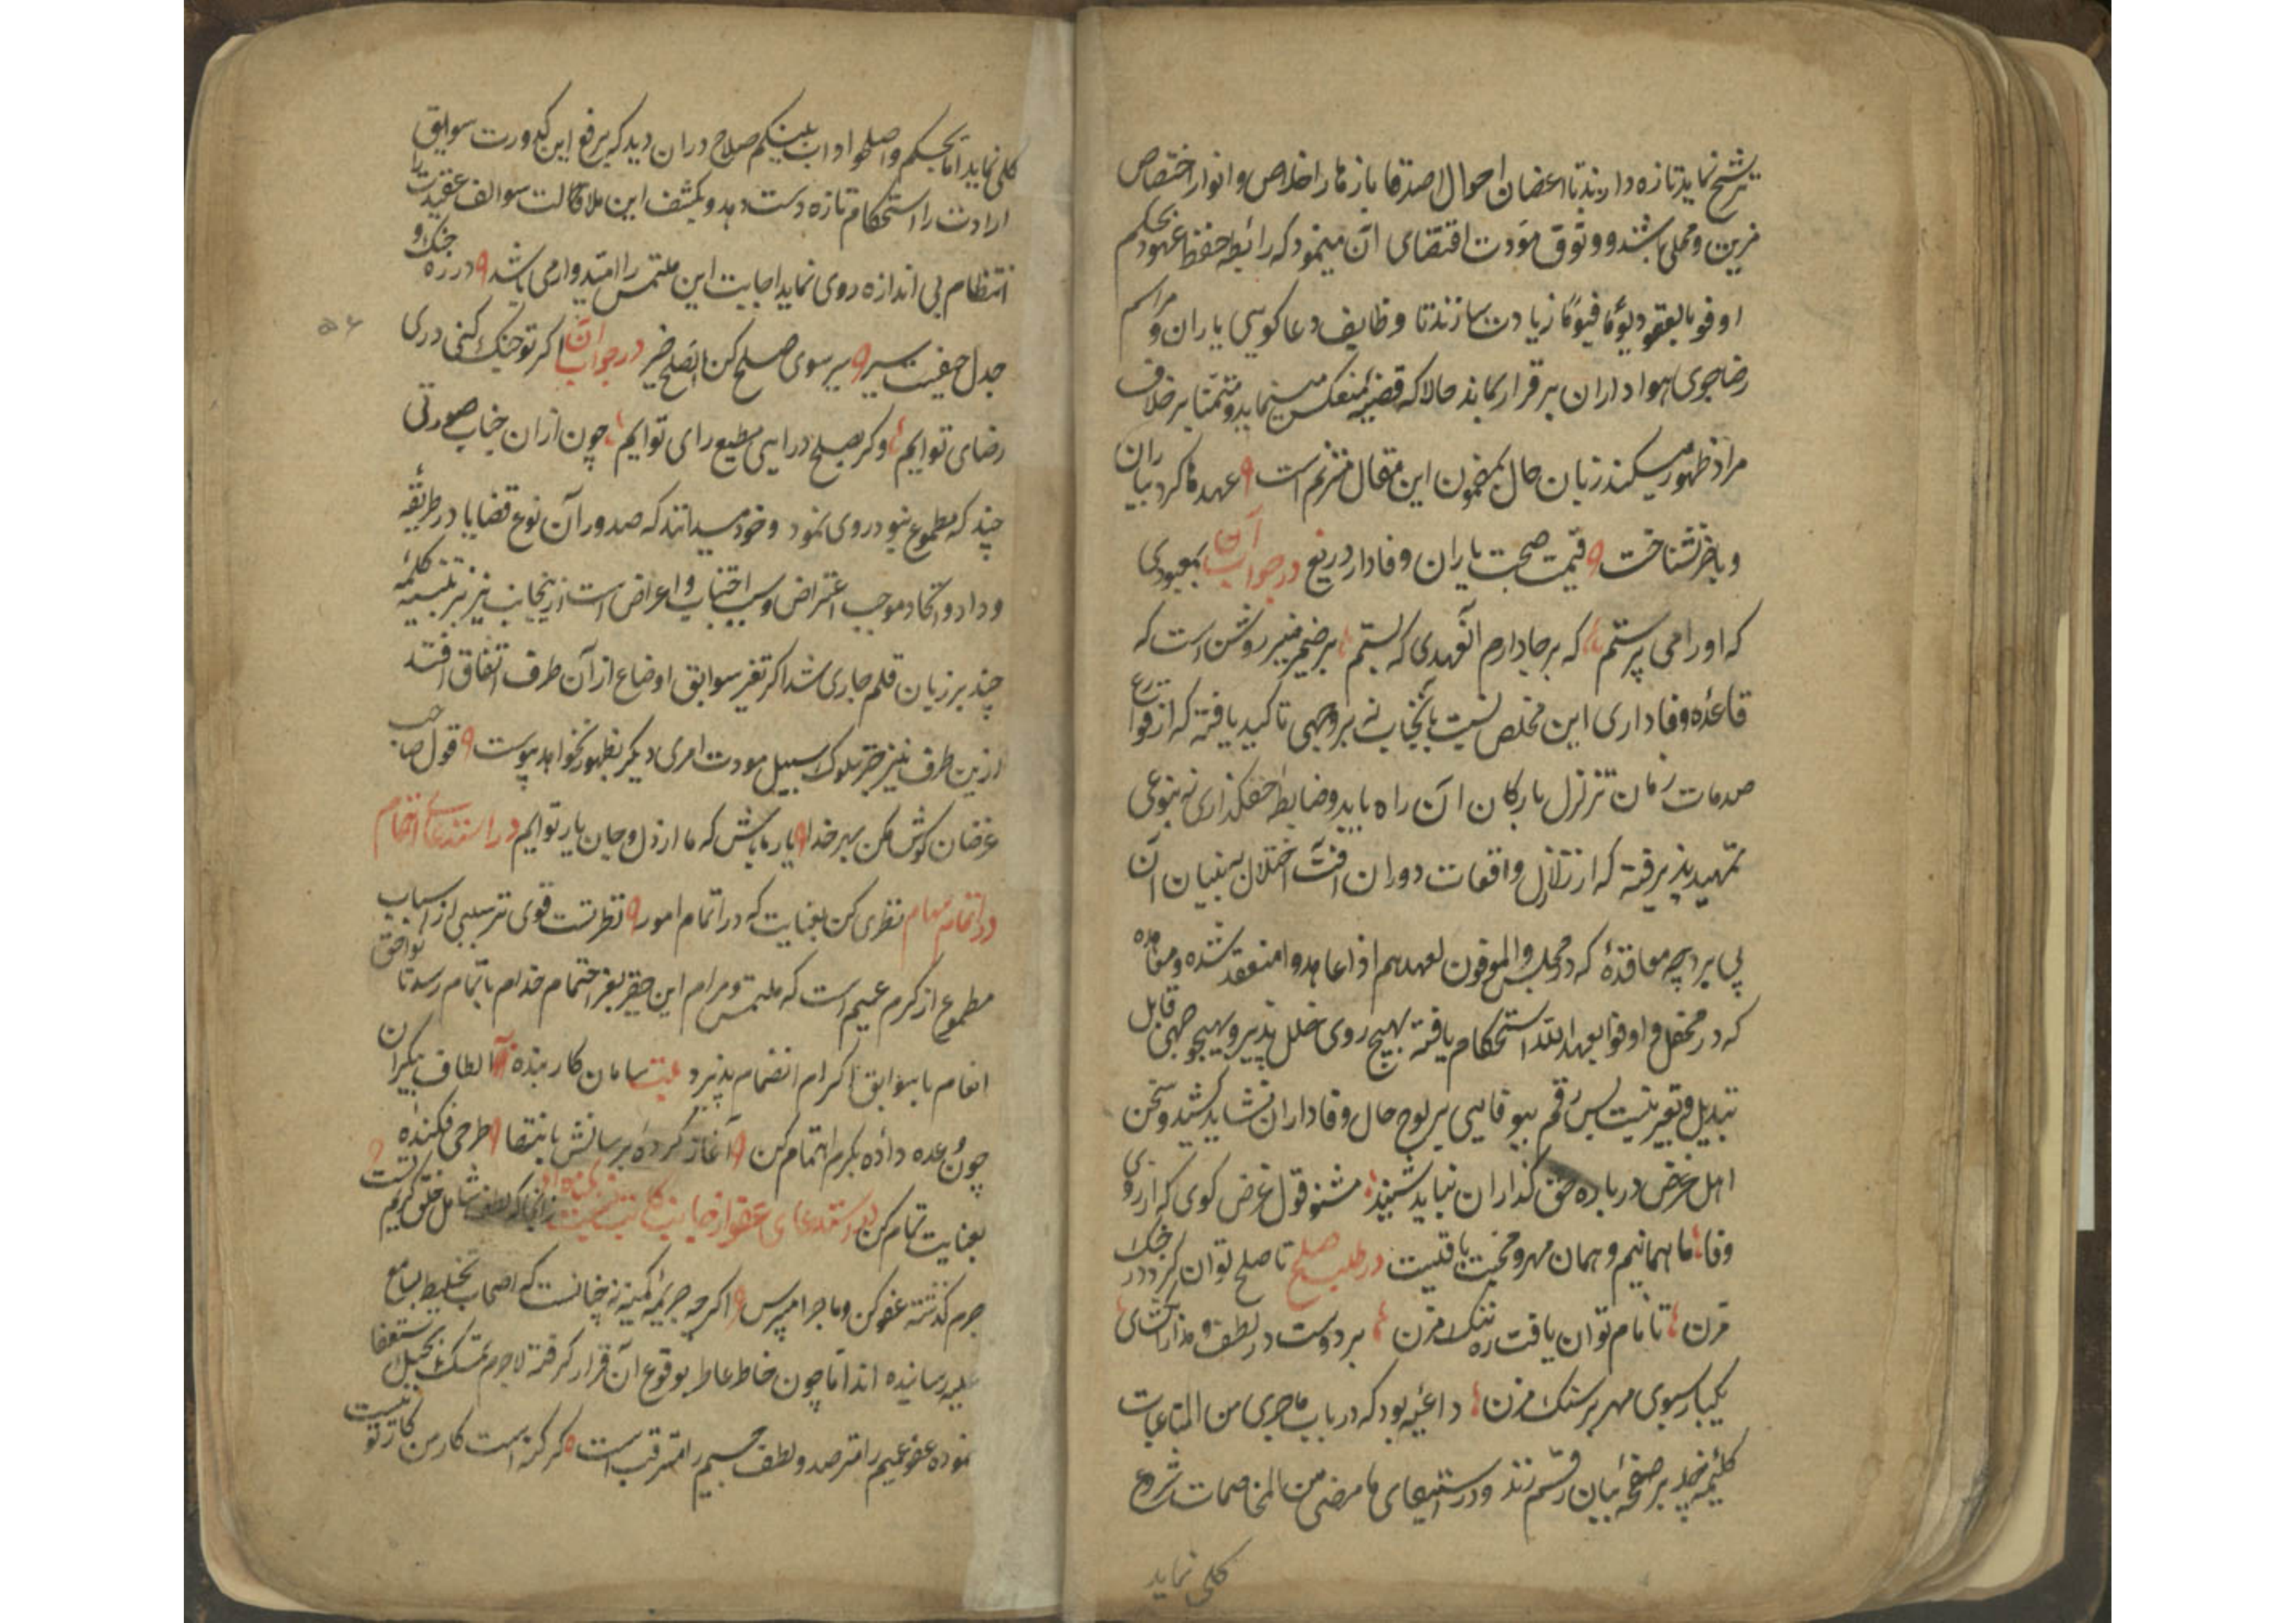 ترشح نماید تازه دارند تا اغصان احوال اصدقا بازهار اخلاص و انوار اختصاص
مزین و محلی باشند و وثوق مودت اقتضای آن مینمود که رابطه حفظ عهود بحکم
اوفوا بالعقود یوما فیوما زیادت سازند تا وظایف دعا کویی یاران و مراسم
رضاجوی هواداران برقرار بماند حالا که قضیه منعکس مینماید و متمنا برخلاف
مراد ظهور میکند زبان حال بمضمون این مقال مترنم است عهدها کرد بیاران
و باخر نشناخت قیمت صحبت یاران وفادار دریغ در جواب آن بمعبودی
که او را می پرستم که برجا دارم آن عهدی که بستم بر ضمیر منیر روشن است که
قاعده وفاداری این مخلص نسبت بآنجناب نه بر وجهی تاکید یافته که از قوارع
صدمات زمان تزلزل بارکان آن راه یابد و ضابطه حقکذاری نه بنوعی
تمهید پذیرفته که از تزلزل واقعات دوران آفت اختلال به بنیان آن
پی برد چه معاقده که در مجلس والموفون بعهدهم اذا عاهدوا منعقد شده و معاهده
که در محفل و اوفوا بعهد الله استحکام یافته بهیچ روی خلل پذیر و بهیچ وجهی قابل
تبدیل و تغییر نیست پس رقم بیوفایی بر لوح حال وفاداران نشاید کشید و سخن
اهل غرض درباره حق کذاران نباید شنید مشنو قول غرض کوی که از روی
وفا ما همانیم و همان مهر و محبت باقیست در طلب صلح تا صلح توان کرد در جنک
مزن تا نام توان یافت ره ننک مزن بر دوست در لطف و مدارا بکشای
یکباره سبوی مهر بر سنک مزن داعیه بود که در باب ماجری من المتاعبات
کلمه چند بر صفحه بیان رقم زند و در استیفای ما مضی من المخاصمات شروع
کلی نماید
کلی نماید اما بحکم واصلحوا ذات بینکم صلاح در آن دید که برفع این کدورت سوابق
ارادت را استحکام تازه دست دهد و بکشف این ملالت سوالف عقیدت را
انتظام بی اندازه روی نماید اجابت این ملتمس را امیدوار می باشد در ره جنک و
جدل حیفست سیر سوی صلح کن الصلح خیر در جواب آن اکر تو جنک کنی در پی
رضای توایم وکر بصلح درایی مطیع رای توایم چون از آن جناب صورتی
چند که مطموع نبود روی نمود و خود میدانند که صدور آن نوع قضایا در طریقه
وداد و اتحاد موجب اعتراض و سبب اجتناب و اعراض است از ینجانب نیز بر تنبیه کلمه
چند بر زبان قلم جاری شد اکر تغیر سوابق اوضاع از آن طرف اتفاق افتد
ازین طرف نیز جز سلوک سبیل مودت امری دیکر بظهور نخواهد پیوست قول صاحب
غرضان کوش مکن بهر خدا یار ما باش که ما از دل و جان یار توایم در استدعای اهتمام
در اتمام مهام نظری کن بعنایت که در اتمام امور نظر تست قوی تر سببی از اسباب
مطموع از کرم عمیم است که ملتمس و مرام این حقیر بعز اهتمام خدام باتمام رسد تا توافق
انعام با سوابق اکرام انضمام پذیرد بیت سامان کار بنده از الطاف بیکران
چون وعده داده بکرم اهتمام کن آغاز کرده برسانش بانتها طرحی فکنده
بعنایت تمام کن در استدعای عفو از جنایت زانجا که لطف شامل خلق کریم تست
جرم کذشته عفو کن و ماجرا مپرس اکرچه جریمه کمینه نه چنانست که اصحاب تخلیط بمسامع
علیه رسانیده اند اما چون خاطر عاطر بوقوع آن قرار کرفته لاجرم تمسک بحبل استعفا
نموده عفو عمیم را مترصد و لطف جسیم را مترقب است کر کنه است کار من کار تو نیست
۵۶